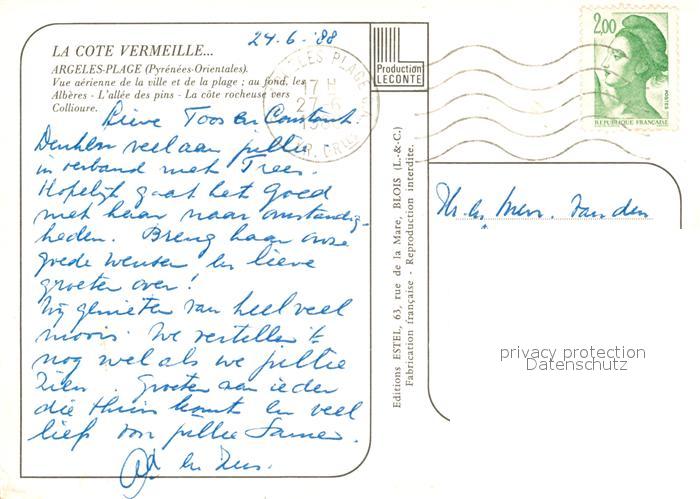 24-6-'88
LA COTE VERMEILLE...
ARGELES-PLAGE (Pyrénées-Orientales).
Vue aérienne de la ville et de la plage ; au fond, les
Albères - L'allée des pins - La côte rocheuse vers
Collioure.
Production
LECONTE
17 H
2,00
POSTES
REPUBLIQUE FRANCAISE
Lieve Toos en Constant
Denken veel aan jullie
in verband met Trees.
Hopelijk gaat het goed
met haar naar omstandig-
heden. Breng haar onze
goede wensen en lieve
groeten over!
Wij genieten van heel veel
moois. We vertellen 't
nog wel als we jullie
zien. Groeten aan ieder
die thuis komt en veel
liefs voor jullie samen.
Ad en
Editions ESTEL, 63, rue de la Mare, BLOIS (L.-&-C.)
Fabrication française - Reproduction interdite.
van den
privacy protection
Datenschutz